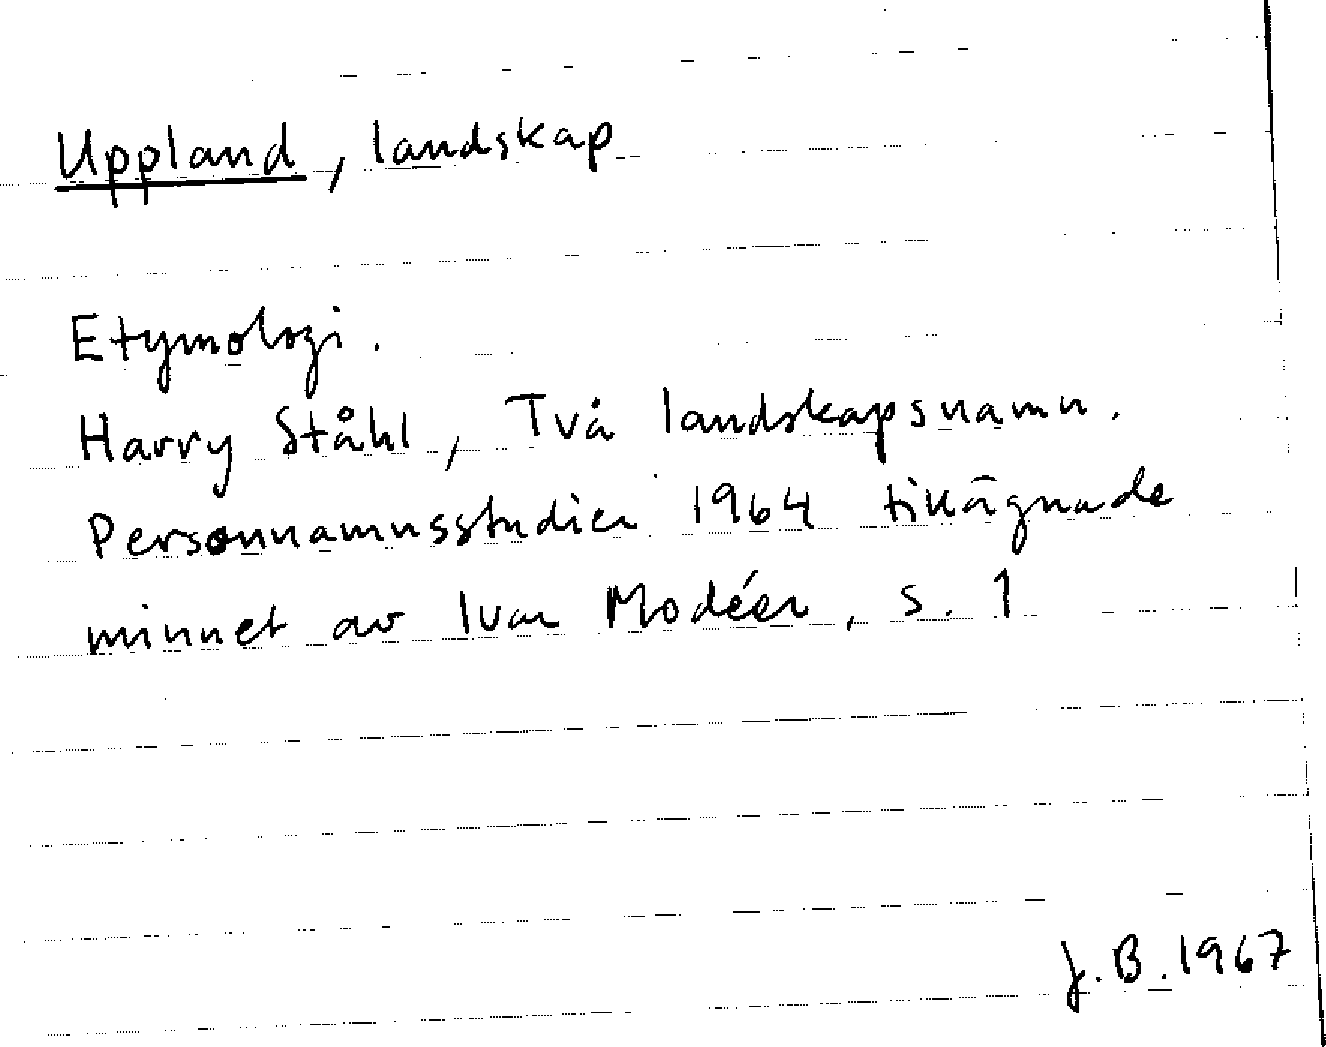 Uppland, landskap
Etymologi.
Harry Ståhl, Två landskapsnamn.
Personnamnsstudier 1964 tillägnade
minnet av Ivar Modéer, s. 1
J.B. 1967